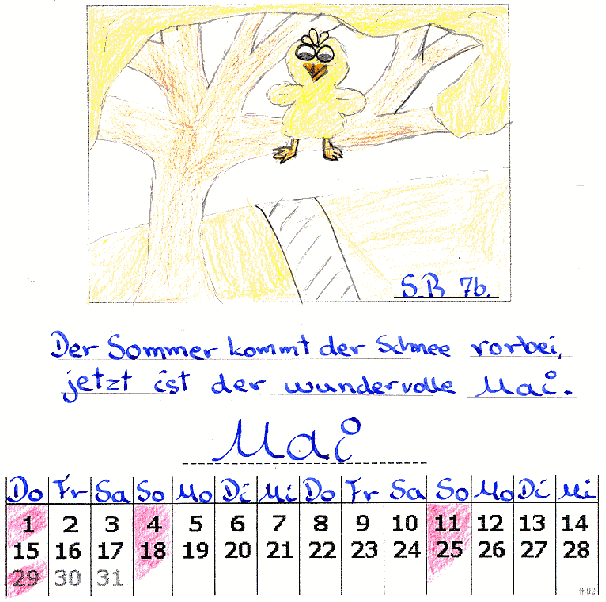 S.B 7b.
Der Sommer kommt der Schnee vorbei,
jetzt ist der wundervolle Mai.
Mai
Do Fr Sa So Mo Di Mi Do Fr Sa So Mo Di Mi
1 2 3 4 5 6 7 8 9 10 11 12 13 14
15 16 17 18 19 20 21 22 23 24 25 26 27 28
29 30 31